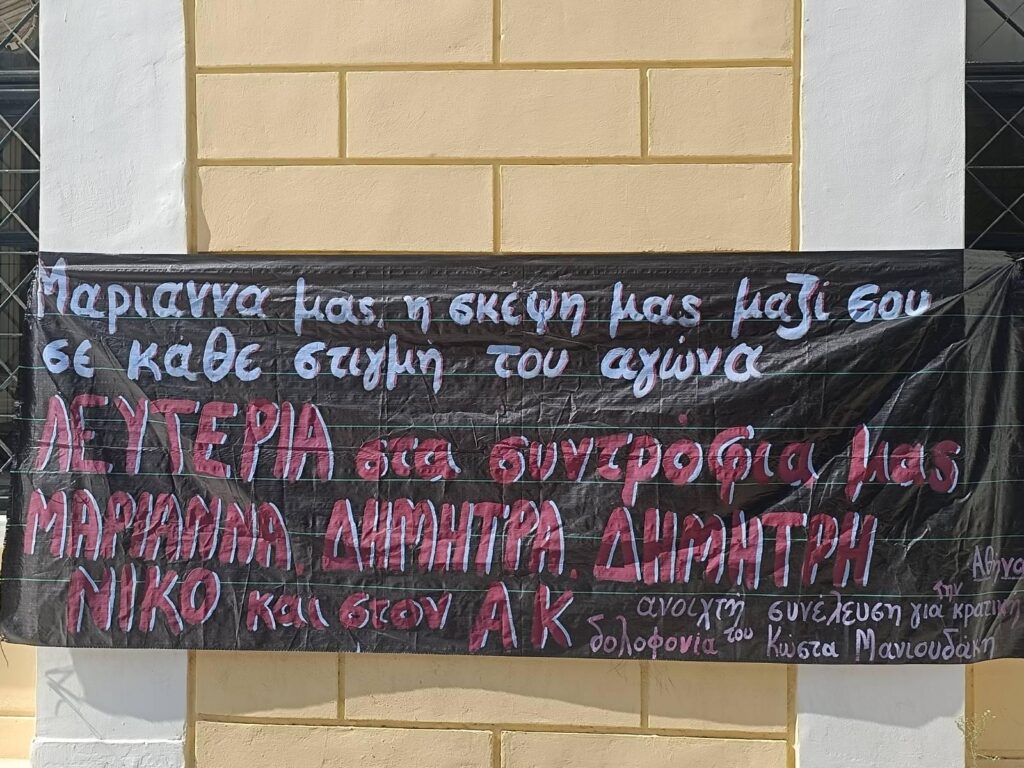 Μαριαννα μας, η σκέψη μας μαζί σου
σε καθε στιγμή του αγώνα
ΛΕΥΤΕΡΙΑ στα συντρόφια μας
ΜΑΡΙΑΝΝΑ, ΔΗΜΗΤΡΑ, ΔΗΜΗΤΡΗ
ΝΙΚΟ και στον Α Κ
ανοιχτή συνέλευση για την κρατική
δολοφονία του Κώστα Μανιουδάκη
Αθηνα